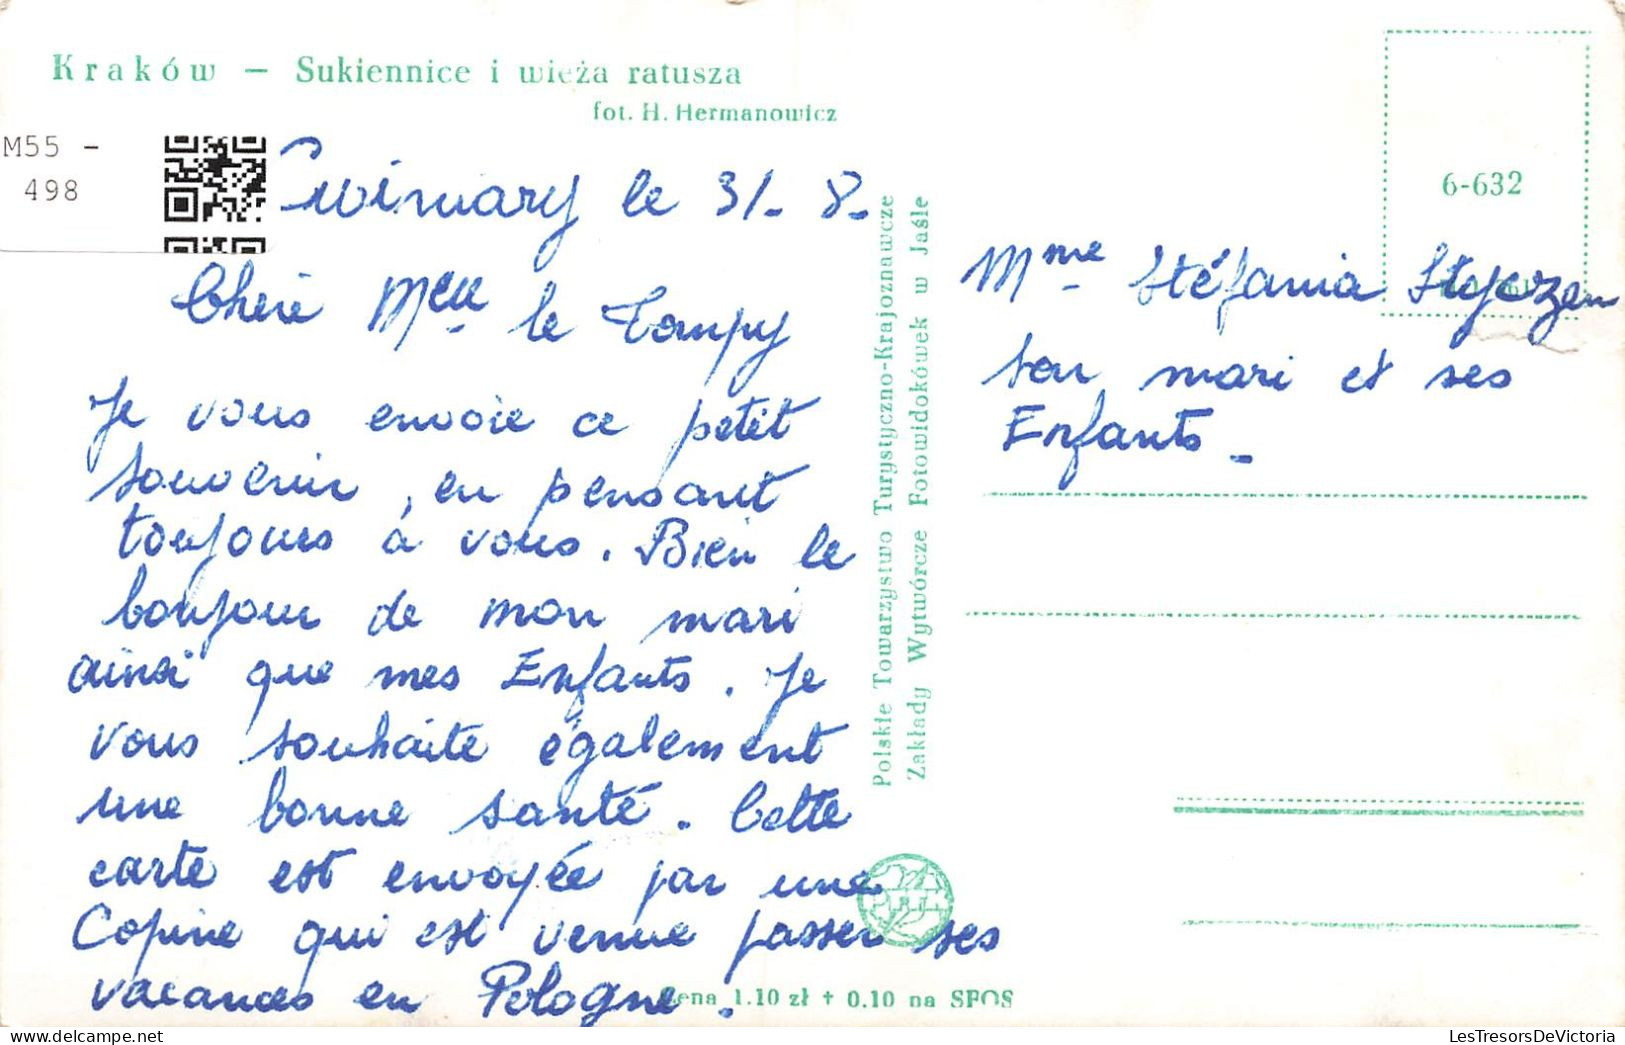 Kraków — Sukiennice i wieża ratusza
fot. H. Hermanowicz
M55 -
498
le 31. 8.
Chère Melle le Tampy
Je vous envoie ce petit
souvenir, en pensant
toujours à vous. Bien le
bonjour de mon mari
ainsi que mes Enfants. Je
vous souhaite également
une bonne santé. Cette
carte est envoyée par une
Copine qui est venue passer ses
vacances en Pologne.
Cena 1.10 zł + 0.10 na SFOS
Polskie Towarzystwo Turystyczno-Krajoznawcze
Zakłady Wytwórcze Fotowidokówek w Jaśle
6-632
Mme Stéfania
son mari et ses
Enfants.
LesTresorsDeVictoria